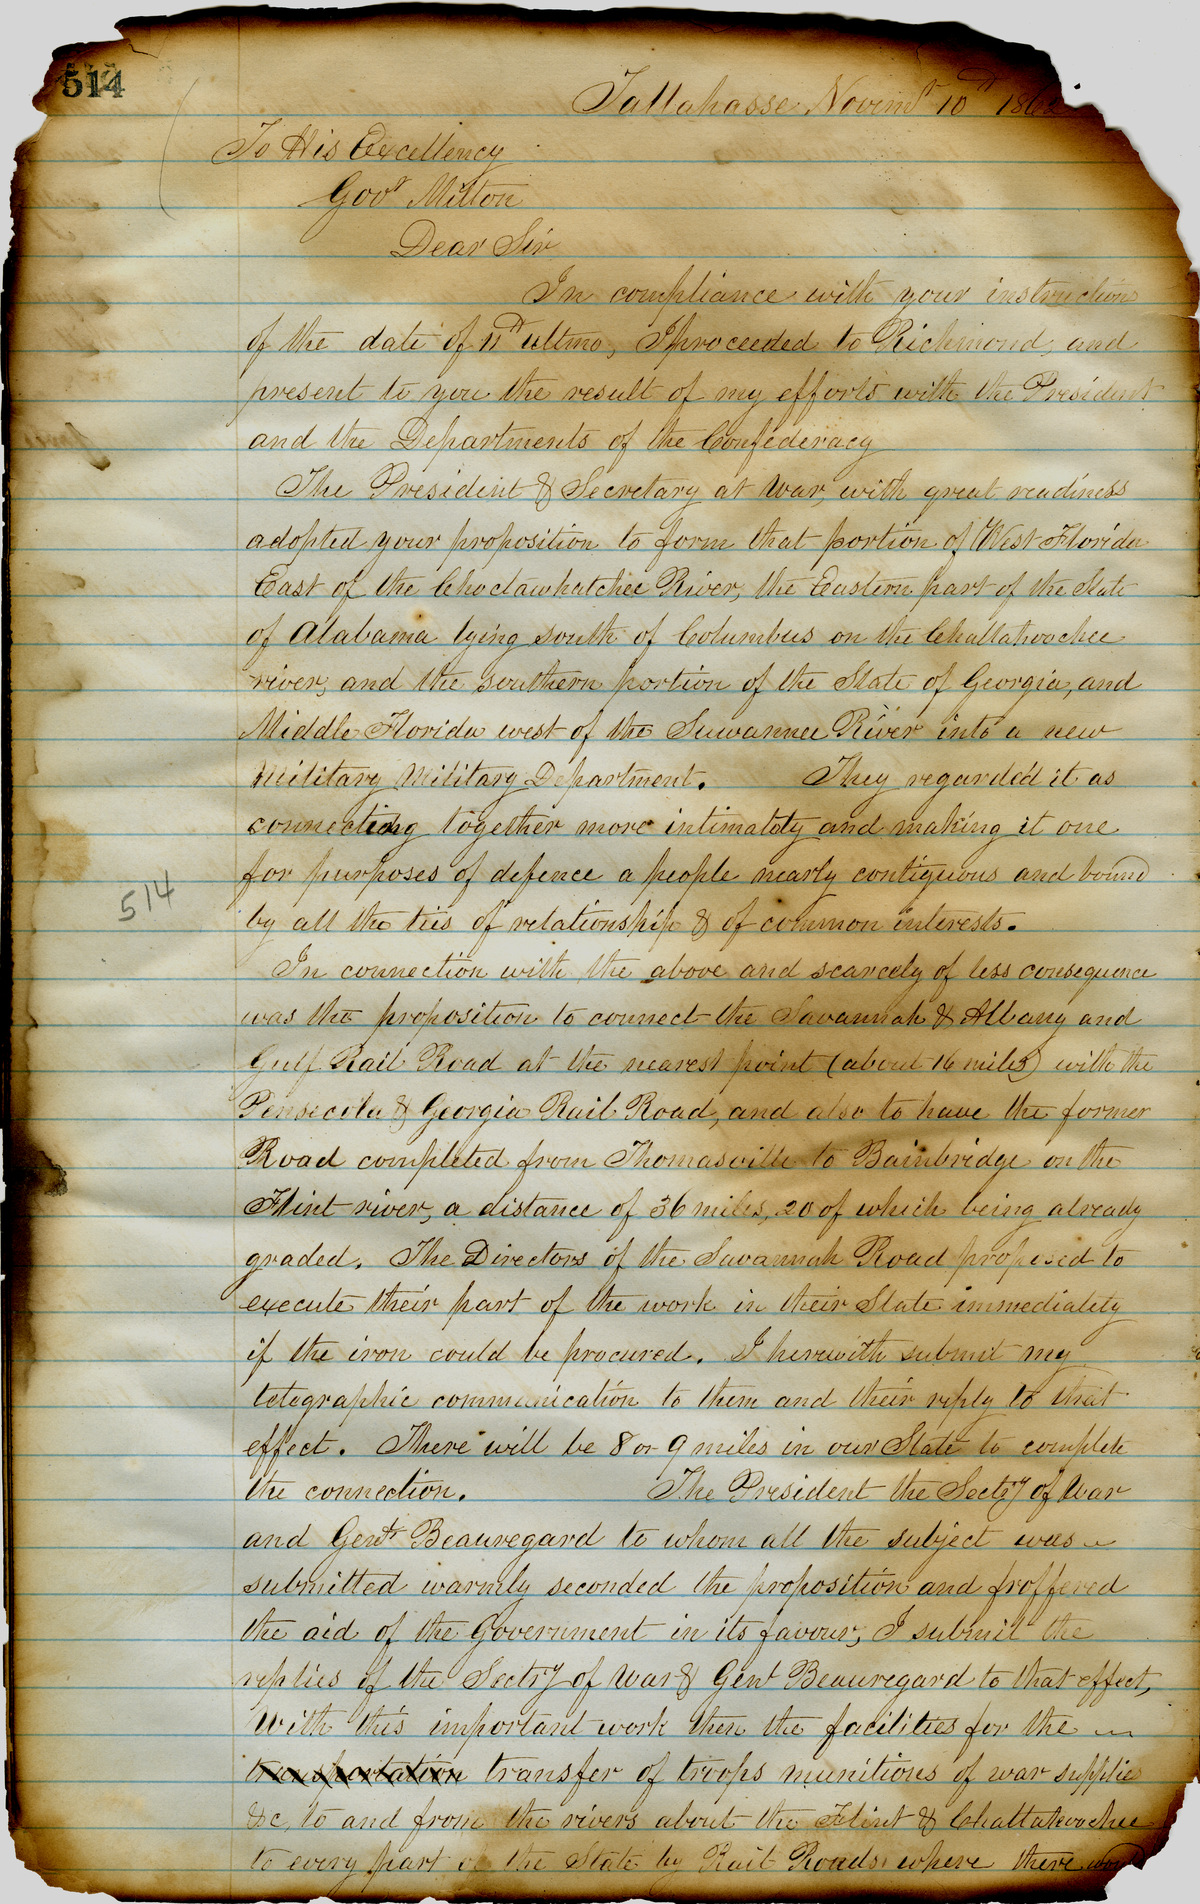 514
Tallahassee Novembr 10th 1862
To His Excellency
Govr Milton
Dear Sir
In compliance with your instructions
of the date of 11th ultmo, I proceeded to Richmond, and
present to you the result of my efforts with the President
and the Departments of the Confederacy
The President & Secretary at War, with great readiness
adopted your proposition to form that portion of West Florida
East of the Choctawhatchee River, the Eastern part of the State
of Alabama lying south of Columbus on the Chattahoochee
river, and the southern portion of the State of Georgia, and
Middle Florida west of the Suwannee River into a new
Military Military Department. They regarded it as
connecting together more intimately and making it one
for purposes of defence a people nearly contiguous and bound
514
by all the ties of relationship & of common interests.
In connection with the above and scarcely of less consequence
was the proposition to connect the Savannah & Albany and
Gulf Rail Road at the nearest point (about 16 miles) with the
Pensecola & Georgia Rail Road, and also to have the former
Road completed from Thomasville to Bainbridge on the
Flint river, a distance of 36 miles, 20 of which being already
graded. The Directors of the Savannah Road proposed to
execute their part of the work in their State immediately
if the iron could be procured. I herewith submit my
telegraphic communication to them and their reply to that
effect. There will be 8 or 9 miles in our State to complete
the connection. The President the Secty of War
and Genl Beauregard to whom all the subject was
submitted warmly seconded the proposition and proffered
the aid of the Government in its favour, I submit the
replies of the Secty of War & Genl Beauregard to that effect,
With this important work then the facilities for the
transportation transfer of troops munitions of war supplies
&c, to and from the rivers about the Flint & Chattahoochee
to every part of the State by Rail Roads where there would